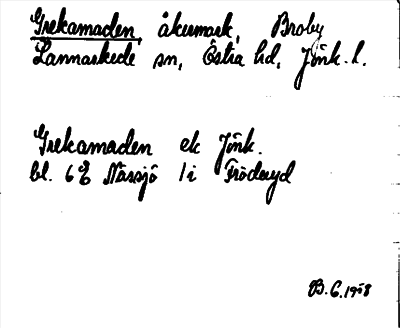 Grekamaden, åkermark, Broby
Lannaskede sn, Östra hd, Jönk. l.
Grekamaden ek Jönk.
bl. 6E Nässjö 1i Fröderyd
B.G. 1958